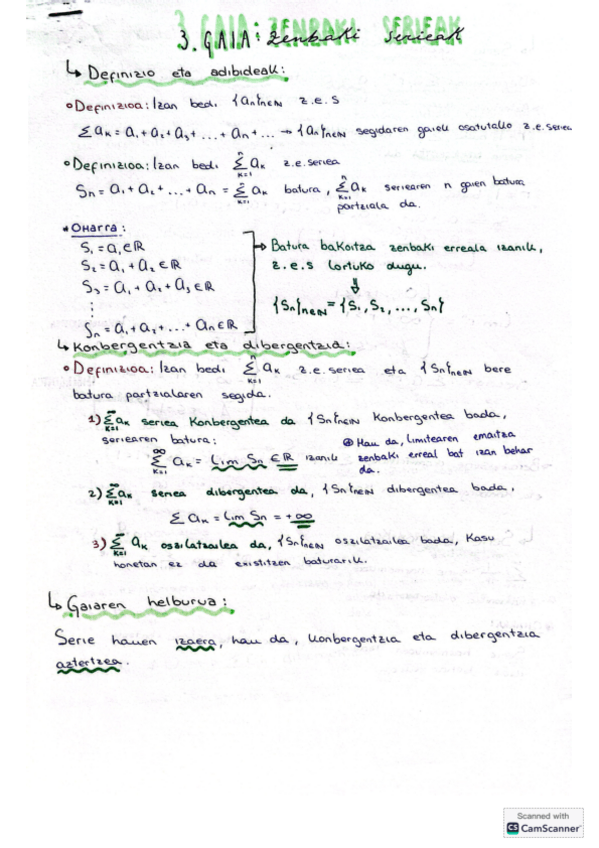 3. GAIA: Zenbaki serieak
↳ Definizio eta adibideak:
• Definizioa: Izan bedi {an}n∈ℕ z.e.s
∑ aₖ = a₁ + a₂ + a₃ + ... + an + ... → {an}n∈ℕ segidaren gaiek osatutako z.e. seriea
• Definizioa: Izan bedi ∑ₖ₌₁ⁿ aₖ z.e. seriea
Sn = a₁ + a₂ + ... + an = ∑ₖ₌₁ⁿ aₖ batura, ∑ₖ₌₁ⁿ aₖ seriearen n gaien batura
partziala da.
• OHARRA:
S₁ = a₁ ∈ ℝ → Batura bakoitza zenbaki erreala izanik,
S₂ = a₁ + a₂ ∈ ℝ z.e.s lortuko dugu.
S₃ = a₁ + a₂ + a₃ ∈ ℝ ⇓
⋮ {Sn}n∈ℕ = {S₁, S₂, ..., Sn}
Sn = a₁ + a₂ + ... + an ∈ ℝ
↳ Konbergentzia eta dibergentzia:
• Definizioa: Izan bedi ∑ₖ₌₁ⁿ aₖ z.e. seriea eta {Sn}n∈ℕ bere
batura partzialaren segida.
1) ∑ₖ₌₁^∞ aₖ seriea konbergentea da {Sn}n∈ℕ konbergentea bada,
seriearen batura: Hau da, limitearen emaitza
∑ₖ₌₁^∞ aₖ = lim Sn ∈ ℝ izanik zenbaki erreal bat izan behar
da.
2) ∑ₖ₌₁^∞ aₖ seriea dibergentea da, {Sn}n∈ℕ dibergentea bada,
∑ aₖ = lim Sn = +∞
3) ∑ₖ₌₁^∞ aₖ oszilatzailea da, {Sn}n∈ℕ oszilatzailea bada, kasu
honetan ez da existitzen baturarik.
↳ Gaiaren helburua:
Serie hauen izaera, hau da, konbergentzia eta dibergentzia
aztertzea.
Scanned with
CS CamScanner